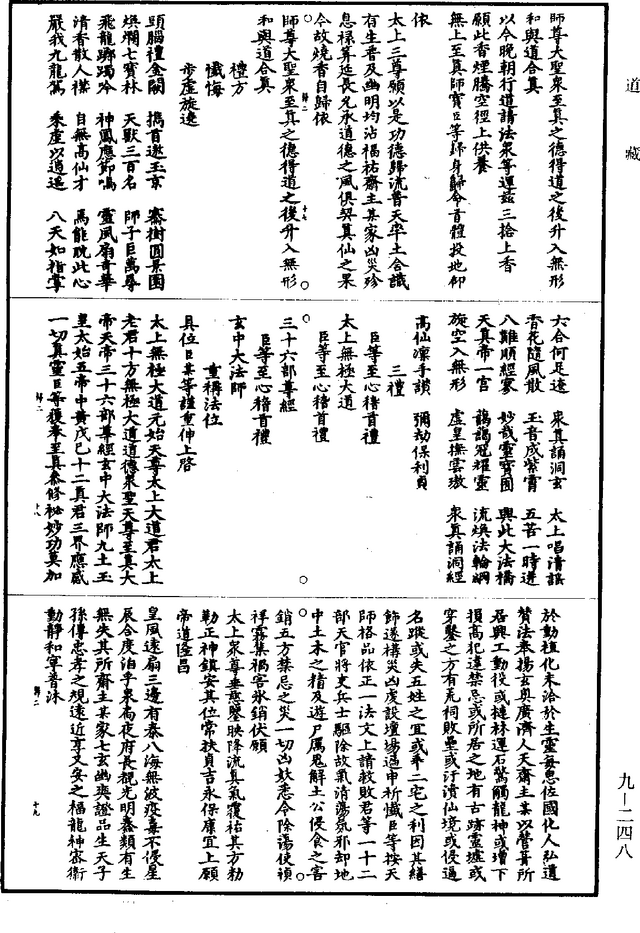 道藏
師尊大聖衆至真之德得道之後升入無形
和與道合真
以今晚朝行道請法衆等運茲三捻上香
願此香煙騰空徑上供養
無上至真師寶臣等歸身歸命首體投地仰
依
太上三尊願以是功德歸流普天率土合識
有生普及幽明均沾福祐齋主某家凶災殄
息祿筭延長允承道德之風俱契真仙之果
今故燒香自歸依
師尊大聖衆至真之德得道之後升入無形
和與道合真
禮方
懺悔
步虛旋遶
頭腦禮金闕 攜首遨玉京 騫樹圓景園
煥爛七寶林 天獸三百名 師子巨萬尋
飛龍躑躅吟 神鳳應節鳴 靈風扇奇華
清香散人襟 自無高仙才 焉能耽此心
嚴我九龍駕 乘虛以逍遙 八天如指掌
六合何足遼 衆真誦洞玄 太上唱清謠
香花隨風散 玉音成紫霄 五苦一時迸
八難順經寥 妙哉靈寶囿 興此大法橋
天真帝一宫 藹藹冠耀靈 流煥法輪綱
旋空入無形 虛皇撫雲璈 衆真誦洞經
高仙凛手讚 彌劫保利貞
三禮
臣等至心稽首禮
太上無極大道
臣等至心稽首禮
三十六部尊經
臣等至心稽首禮
玄中大法師
重稱法位
具位臣某等謹重伸上啓
太上無極大道元始天尊太上大道君太上
老君十方無極大道道德衆聖天尊至真大
帝天帝三十六部尊經玄中大法師九土玉
皇太始五帝中黄戊己十二真君三界應感
一切真靈臣等復奉至真恭修秘妙功莫加
於動植化未洽於生靈每思佐國化人弘道
贊法奉揚玄奥廣濟人天齋主某以營葺所
居興工動役或樵林運石驚觸龍神或增下
損高犯違禁忌或所居之地有古跡靈墟或
穿鑿之方有荒祠敗壘或汙瀆仙境或侵逼
名蹤或失五姓之宜或乖二宅之利因其繕
飾遂構災凶虔設壇場遍申祈懺臣等按天
師格品依正一法文上請赦敗君等一十二
部天官將吏兵士驅除故氣清蕩氛邪却地
中土木之精及遊尸厲鬼解土公侵食之害
銷五方禁忌之災一切凶妖悉令除蕩使禎
祥霧集禍咎氷銷伏願
太上衆尊垂慈鑒映降流真氣覆祐其方勑
勒正神鎮安其位常扶貞吉永保康宜上願
帝道隆昌
皇風遠扇三邊有泰八海無波疫毒不侵星
辰合度泊乎泉扃夜府長覩光明蠢類有生
無失其所齋主某家七玄幽爽證品生天子
孫傳忠孝之規遠近享乂安之福龍神密衛
動靜和寧普沐
歸二 十七
歸二 十八
歸二 十九
九—二四八